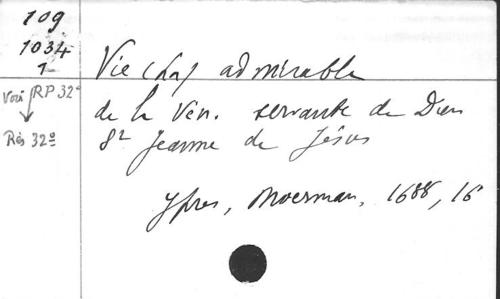 109
1034
1
Voir RP 32°
Rés 32º
Vie (La) admirable
de la Vén. servante de Dieu
Sr Jeanne de Jésus
Ypres, Moerman, 1688, 16°